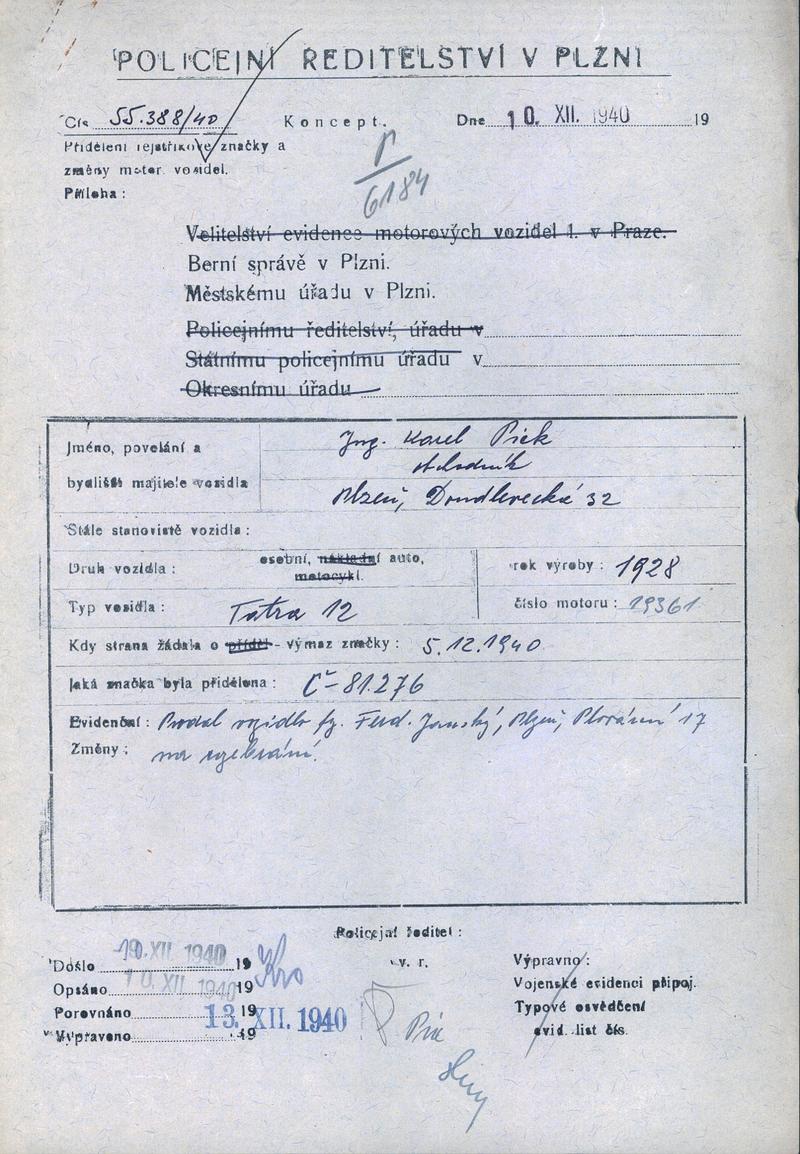 POLICEJNÍ ŘEDITELSTVÍ V PLZNI
Čís. 55.388/40 Koncept. Dne 10. XII. 1940 19
Přidělení rejstříkové značky a
změny motor. vozidel.
Příloha:
6184
Velitelství evidence motorových vozidel 1. v Praze.
Berní správě v Plzni.
Městskému úřadu v Plzni.
Policejnímu ředitelství, úřadu v
Státnímu policejnímu úřadu v
Okresnímu úřadu
Jméno, povolání a
bydliště majitele vozidla
Ing. Karel Pick
obchodník
Plzeň, Doudlevecká 32
Stálé stanoviště vozidla:
Druh vozidla: osobní, nákladní auto,
motocykl.
rok výroby: 1928
Typ vozidla: Tatra 12
číslo motoru: 19361
Kdy strana žádala o příděl - výmaz značky: 5.12.1940
Jaká značka byla přidělena: Č-81.276
Evidenční: Prodal vozidlo fy. Ferd. Janský, Plzeň, 17
Změny: na rozebrání.
Policejní ředitel:
v. r.
Došlo 10. XII 1940 19
Opsáno 10. XII 1940 19
Porovnáno 19
13. XII. 1940
Vypraveno 19
Výpravno:
Vojenské evidenci připoj.
Typové osvědčení
evid. list čís.